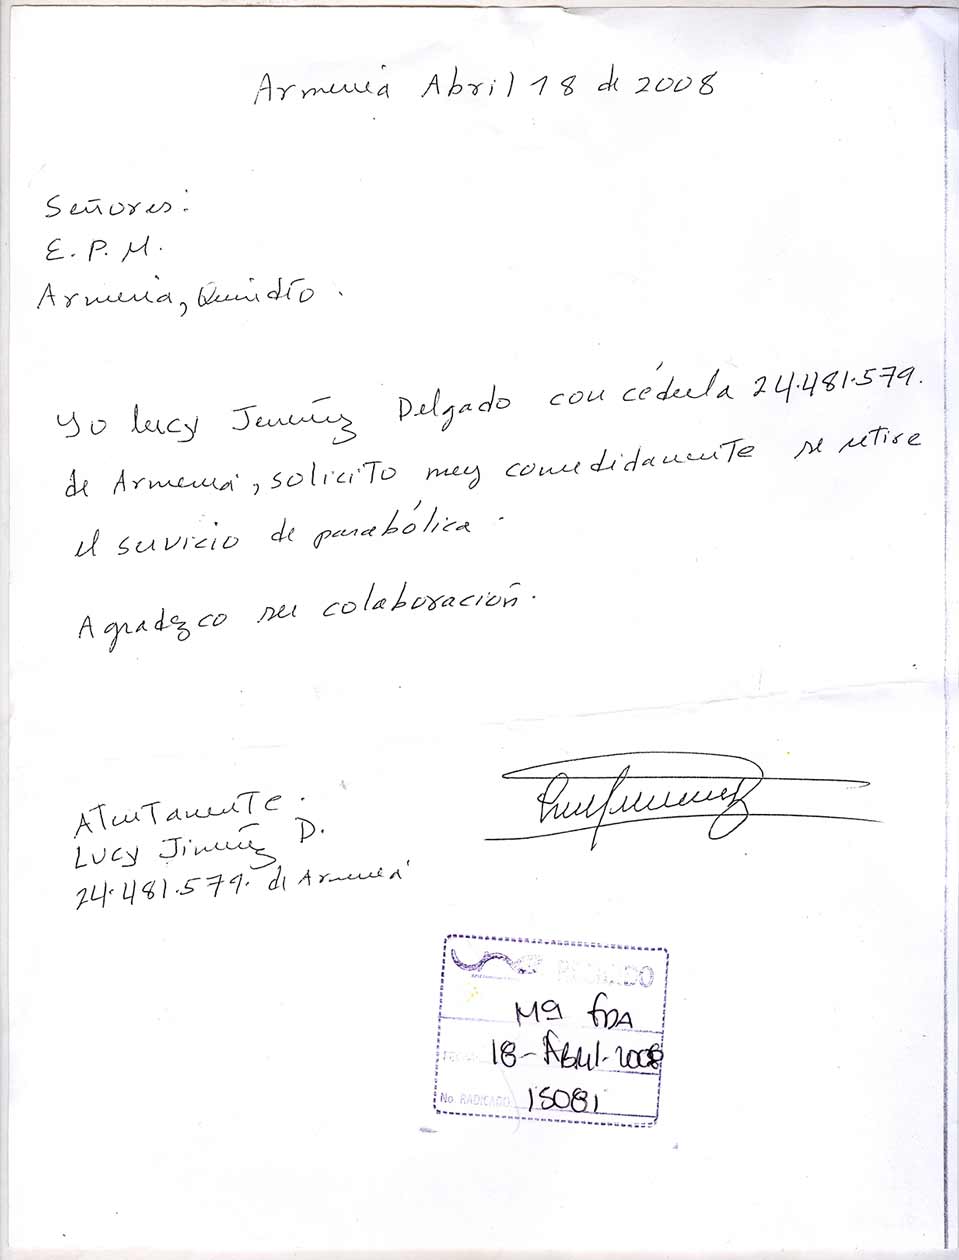 Armenia Abril 18 de 2008
Señores:
E. P. M.
Armenia, Quindío.
Yo Lucy Jiménez Delgado con cédula 24.481.579.
de Armenia, solicito muy comedidamente se retire
el servicio de parabólica.
Agradezco su colaboración.
Atentamente.
Lucy Jiménez D.
24.481.579. de Armenia
RECIBIDO
Mª fda
18-Abril-2008
No. RADICADO 15081